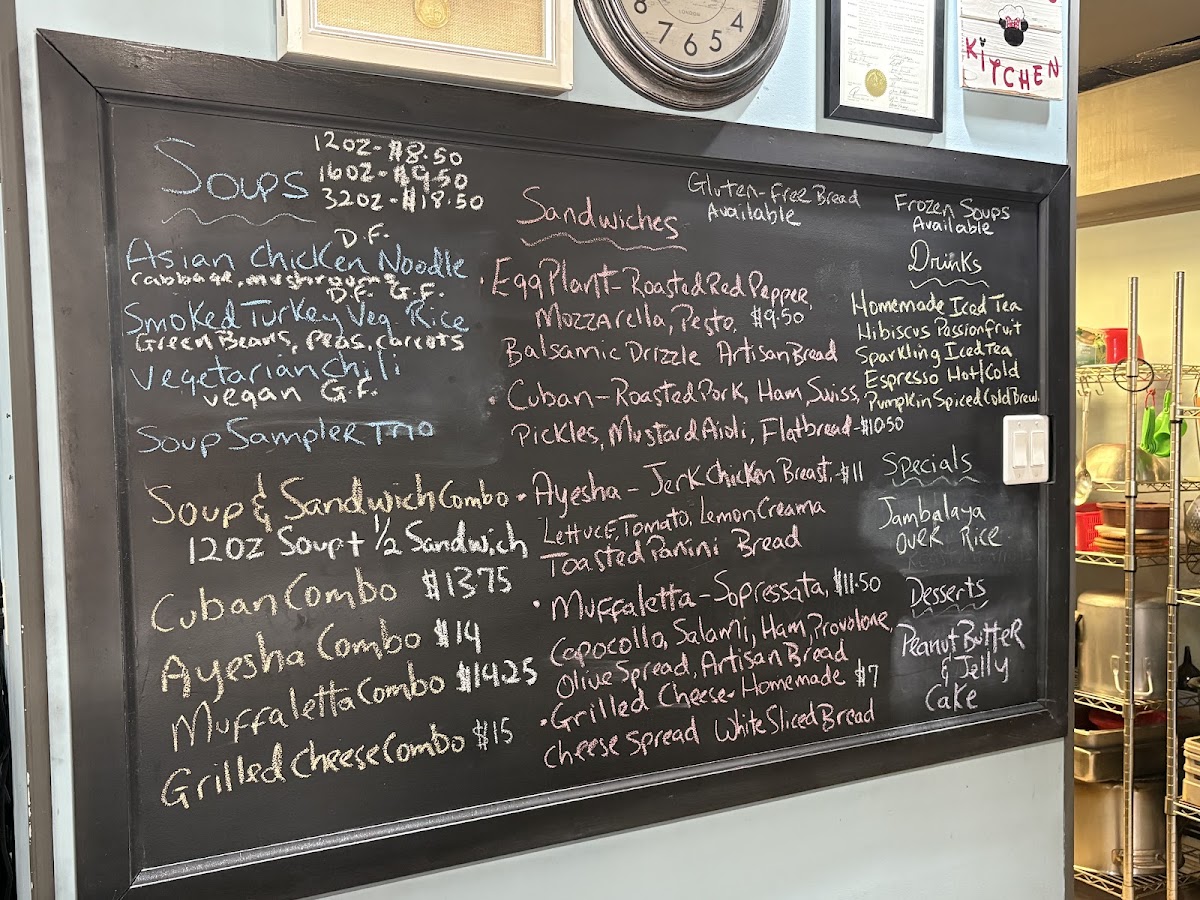 8 7 6 5 4
LONDON
KITCHEN
Soups
12oz-$8.50
16oz-$9.50
32oz-$18.50
D.F.
Asian Chicken Noodle
Cabbage, mushrooms
D.F. G.F.
Smoked Turkey Veg. Rice
Green Beans, Peas, Carrots
Vegetarian Chili
Vegan G.F.
Soup Sampler Trio
Soup & Sandwich Combo
12oz Soup + 1/2 Sandwich
Cuban Combo $13.75
Ayesha Combo $14
Muffaletta Combo $14.25
Grilled Cheese Combo $15
Sandwiches
Gluten-Free Bread
Available
• EggPlant-Roasted Red Pepper,
Mozzarella, Pesto, $9.50
Balsamic Drizzle Artisan Bread
• Cuban-Roasted Pork, Ham, Suiss,
Pickles, Mustard Aioli, Flatbread-$10.50
• Ayesha - Jerk Chicken Breast,-$11
Lettuce, Tomato, Lemon Creama
Toasted Panini Bread
• Muffaletta-Sopressata, $11.50
Capocollo, Salami, Ham, Provolone,
Olive Spread, Artisan Bread
• Grilled Cheese-Homemade $7
Cheese Spread White Sliced Bread
Frozen Soups
Available
Drinks
Homemade Iced Tea
Hibiscus Passionfruit
Sparkling Iced Tea
Espresso Hot/Cold
Pumpkin Spiced Cold Brew
Specials
Jambalaya
Over Rice
Desserts
Peanut Butter
& Jelly
Cake